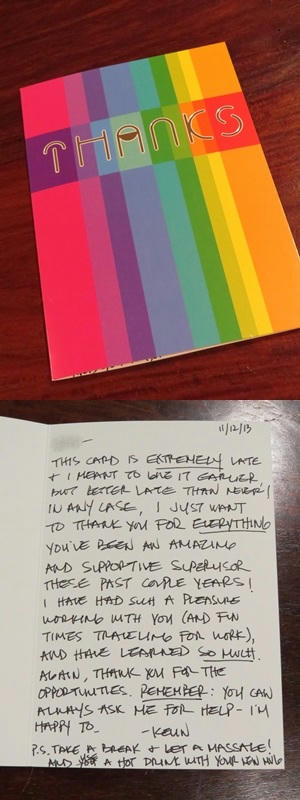 THANKS
11/12/13
THIS CARD IS EXTREMELY LATE
& I MEANT TO GIVE IT EARLIER,
BUT BETTER LATE THAN NEVER!
IN ANY CASE, I JUST WANT
TO THANK YOU FOR EVERYTHING
YOU'VE BEEN AN AMAZING
AND SUPPORTIVE SUPERVISOR
THESE PAST COUPLE YEARS!
I HAVE HAD SUCH A PLEASURE
WORKING WITH YOU (AND FUN
TIMES TRAVELING FOR WORK),
AND HAVE LEARNED SO MUCH.
AGAIN, THANK YOU FOR THE
OPPORTUNITIES. REMEMBER: YOU CAN
ALWAYS ASK ME FOR HELP - I'M
HAPPY TO.
P.S. TAKE A BREAK & GET A MASSAGE!
AND USE A HOT DRINK WITH YOUR NEW MUG